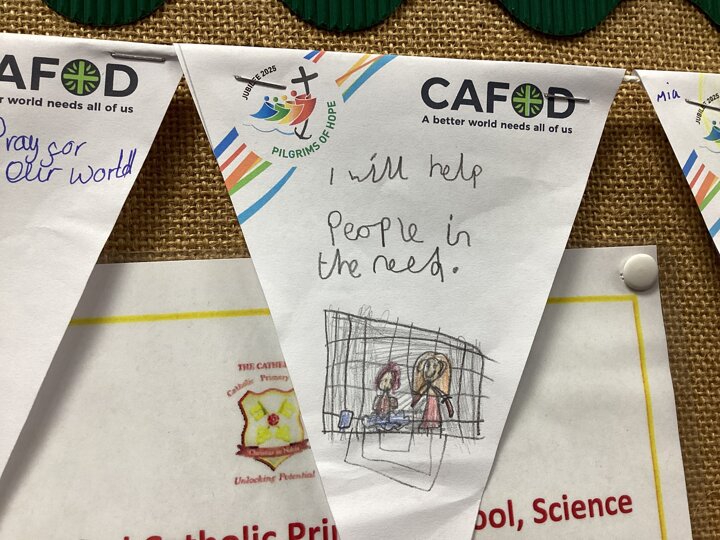 AFOD
r world needs all of us
Pray for
our world
JUBILEE 2025
PILGRIMS OF HOPE
CAFOD
A better world needs all of us
I will help
People in
the need.
Mia
JUBILEE 2025
THE CATHE
Catholic Primary
Christus in Nobis
Unlocking Potential
Catholic Pri
ool, Science